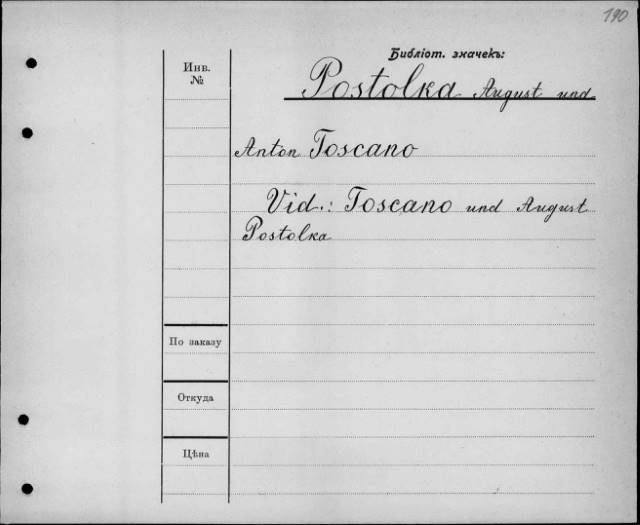 190
Библіот. значекъ:
Инв.
№
Postolka August und
Anton Toscano
Vid.: Toscano und August
Postolka
По заказу
Откуда
Цѣна